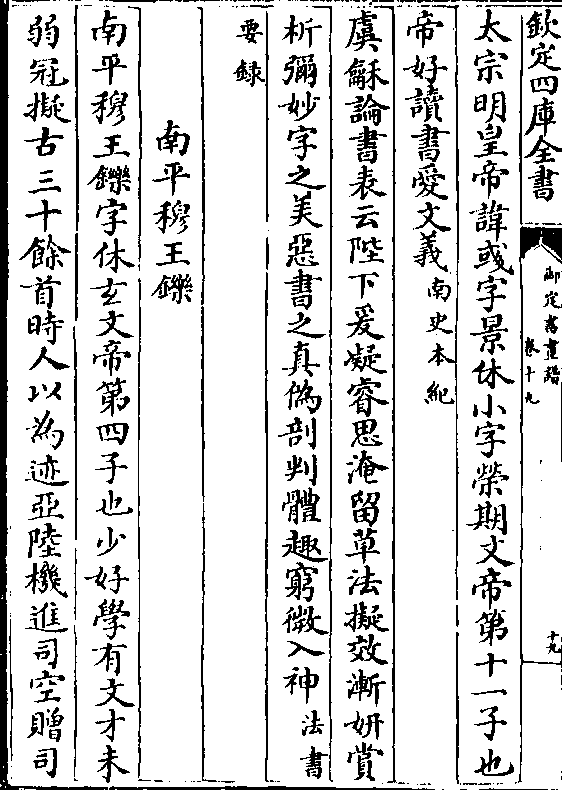 欽定四庫全書
御定書畫譜
卷十九
十九
太宗明皇帝諱彧字景休小字榮期文帝第十一子也
帝好讀書愛文義南史本紀
虞龢論書表云陛下爰凝睿思淹留草法擬效漸妍賞
析彌妙字之美惡書之真偽剖判體趣窮微入神法書
要録
南平穆王鑠
南平穆王鑠字休玄文帝第四子也少好學有文才未
弱冠擬古三十餘首時人以為迹亞陸機進司空贈司